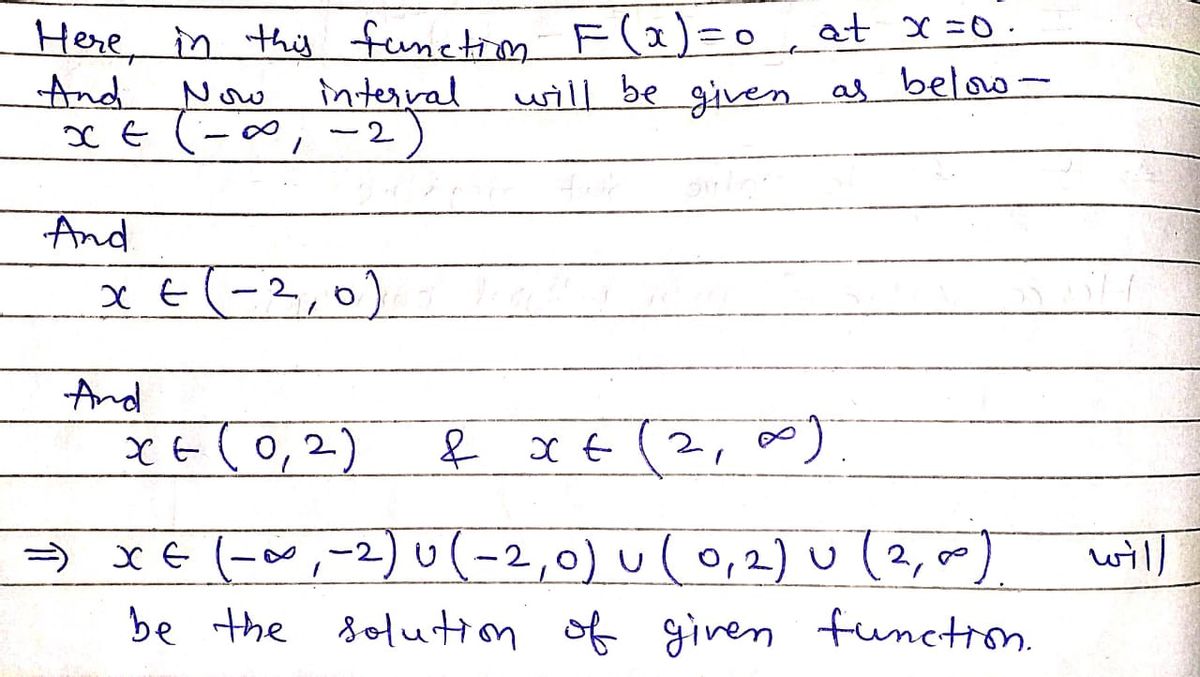 Here, in this function F(x)=0, at x=0.
And Now interval will be given as below—
x ∈ (-∞, -2)
And
x ∈ (-2, 0)
And
x ∈ (0, 2) & x ∈ (2, ∞).
⇒ x ∈ (-∞, -2) ∪ (-2, 0) ∪ (0, 2) ∪ (2, ∞). will
be the solution of given function.